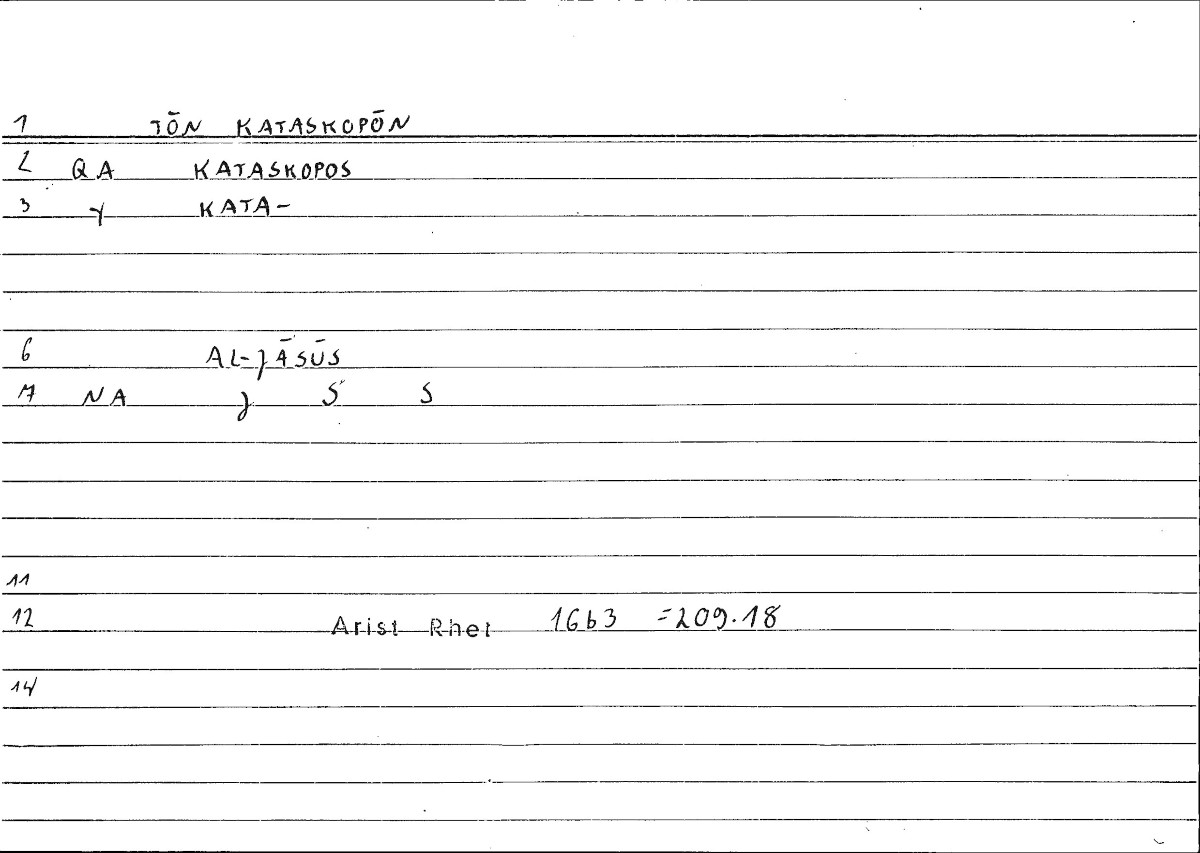 1 TŌN KATASKOPŌN
2 QA KATASKOPOS
3 γ KATA-
6 AL-JĀSŪS
7 NA J S S
11
12 Arist Rhet 16b3 =209.18
14